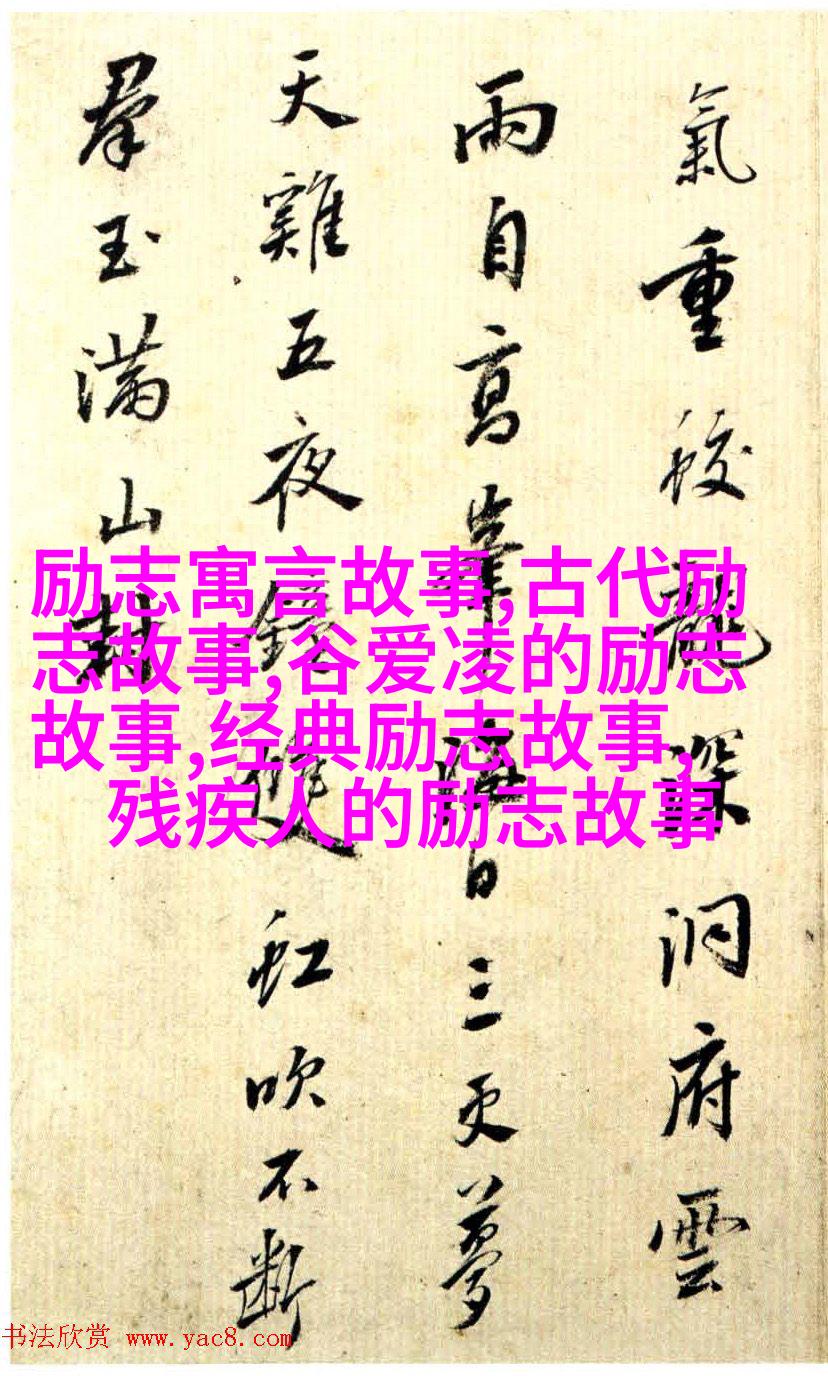 氣重蛟龍深洞府雲
雨自高峯海日三更夢
天雞五夜鐘雙虹吹不斷
羣玉滿山封
励志寓言故事,古代励
志故事,谷爱凌的励志
故事,经典励志故事,
残疾人的励志故事
书法欣赏 www.yac8.com